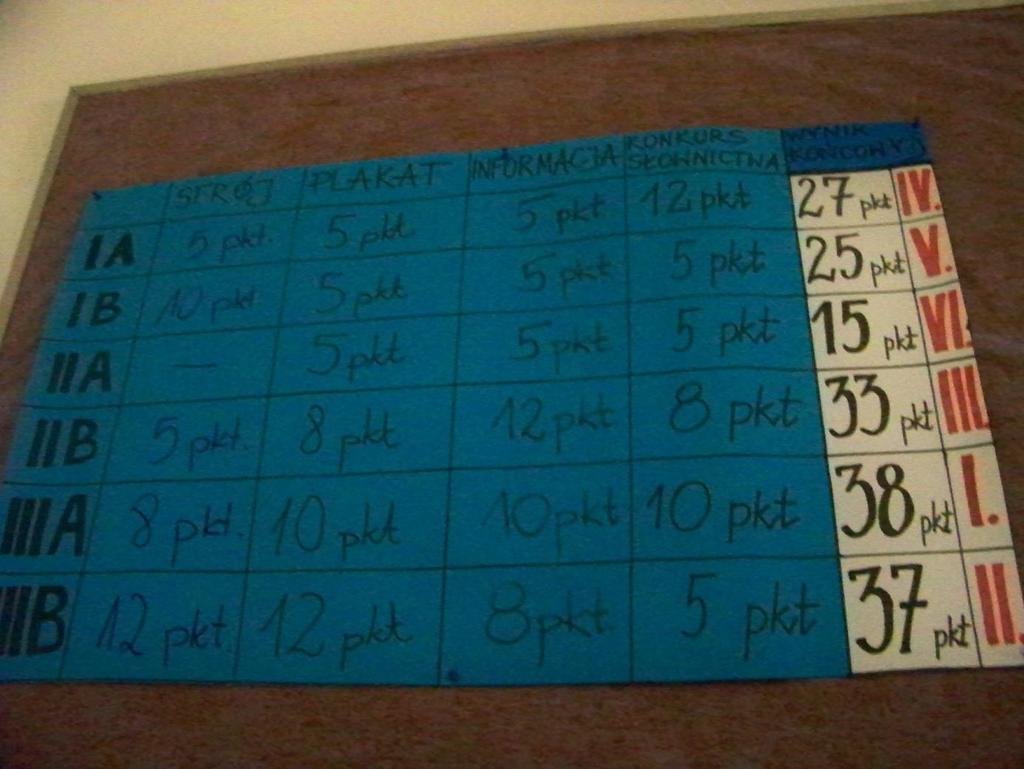 STRÓJ PLAKAT INFORMACJA KONKURS SŁOWNICTWA WYNIK KOŃCOWY
IA 5 pkt. 5 pkt 5 pkt 12 pkt 27 pkt IV.
IB 10 pkt 5 pkt 5 pkt 5 pkt 25 pkt V.
IIA — 5 pkt 5 pkt 5 pkt 15 pkt VI.
IIB 5 pkt. 8 pkt 12 pkt 8 pkt 33 pkt III.
IIIA 8 pkt. 10 pkt 10 pkt 10 pkt 38 pkt I.
IIIB 12 pkt. 12 pkt 8 pkt 5 pkt 37 pkt II.